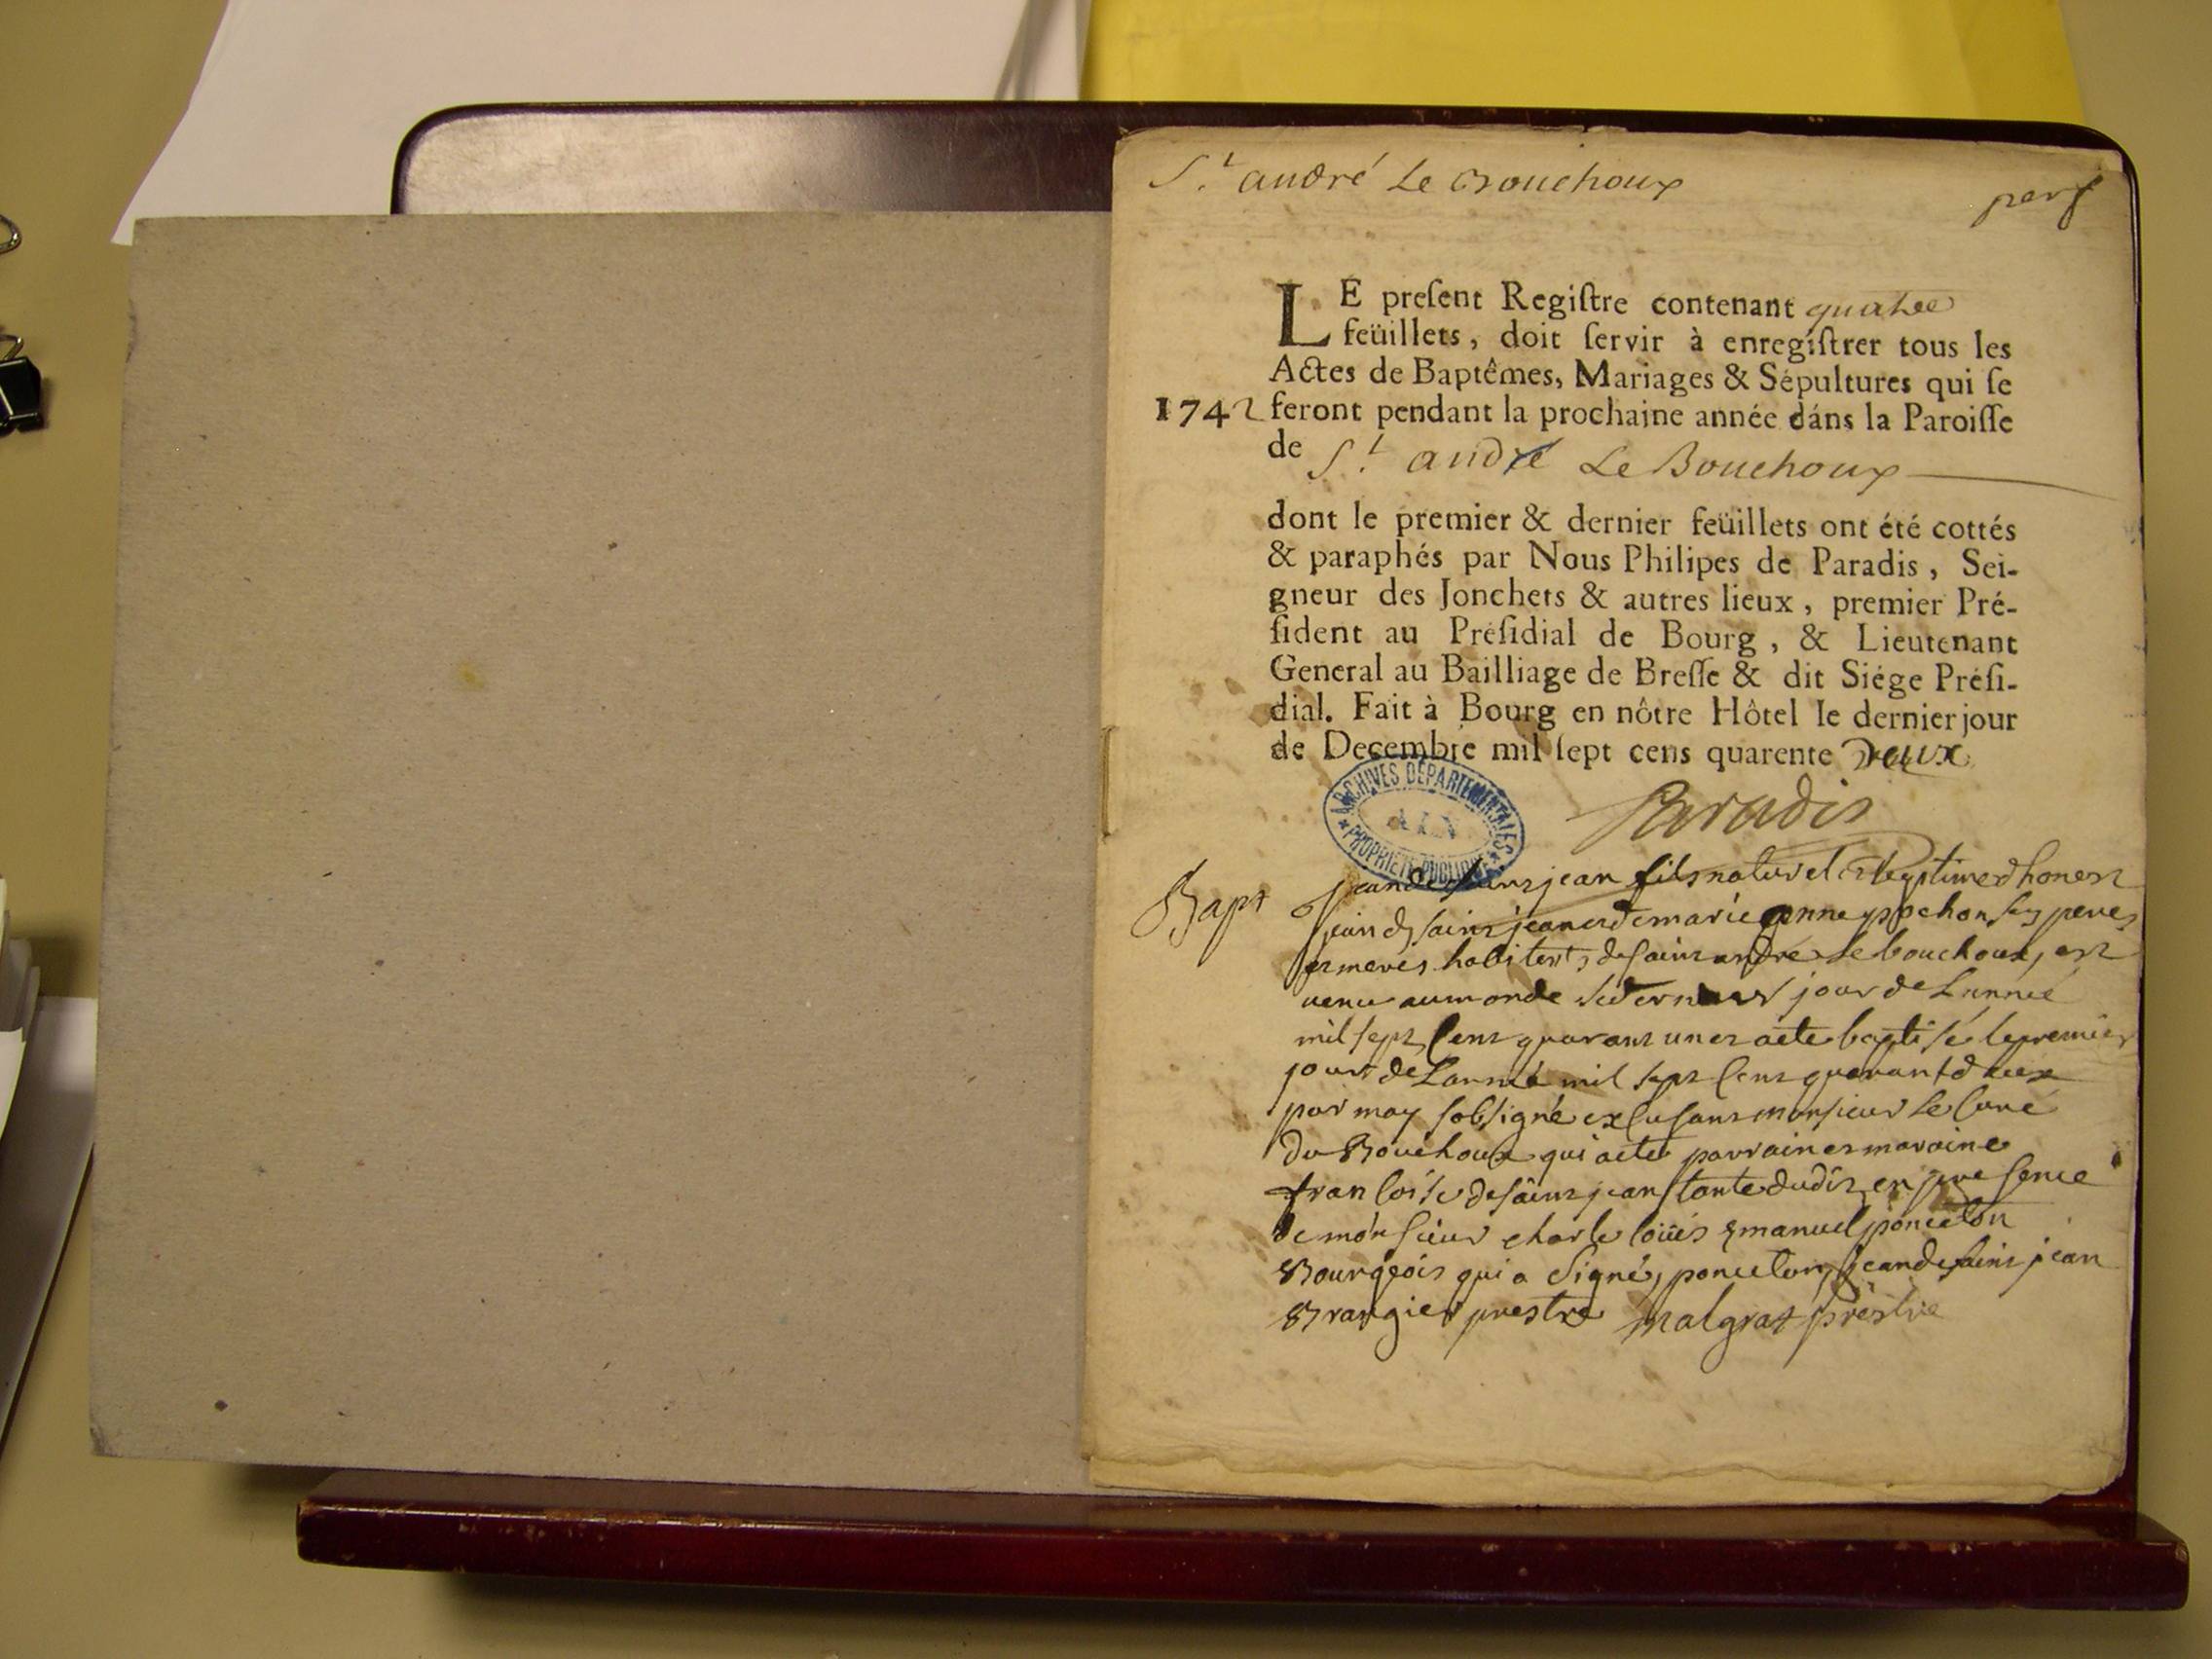 St andré Le Bouchoux
LE preſent Regiſtre contenant quatre
feüillets, doit ſervir à enregiſtrer tous les
Actes de Baptêmes, Mariages & Sépultures qui ſe
1742 feront pendant la prochaine année dáns la Paroiſſe
de St andré Le Bouchoux
dont le premier & dernier feüillets ont été cottés
& paraphés par Nous Philipes de Paradis, Sei-
gneur des Jonchets & autres lieux, premier Pré-
ſident au Préſidial de Bourg, & Lieutenant
General au Bailliage de Breſſe & dit Siége Préſi-
dial. Fait à Bourg en nôtre Hôtel le dernier jour
de Decembre mil ſept cens quarente Deux
Paradis
ARCHIVES DÉPARTEMENTALES
AIN
PROPRIÉTÉ PUBLIQUE
Bapt jean de sains jean fils naturel et legitime d honest
jean de sains jean et de marie anne pochon ses peres
et meres habitents de sains andre le bouchoux, est
venu au monde le dernier jour de Lannée
mil sept cens quarant un et a ete baptisé le premier
jour de Lanneé mil sept cens quarant deux
par moy sobsigné monsieur le curé
du Bouchoux qui a ete parrain et maraine
francoise de sains jean tante dudit, en presence
de monsieur charle loüis Emanuel ponceton
Bourgeois qui a signé, ponceton, jean de sains jean
Brangier prestre malgras prestre